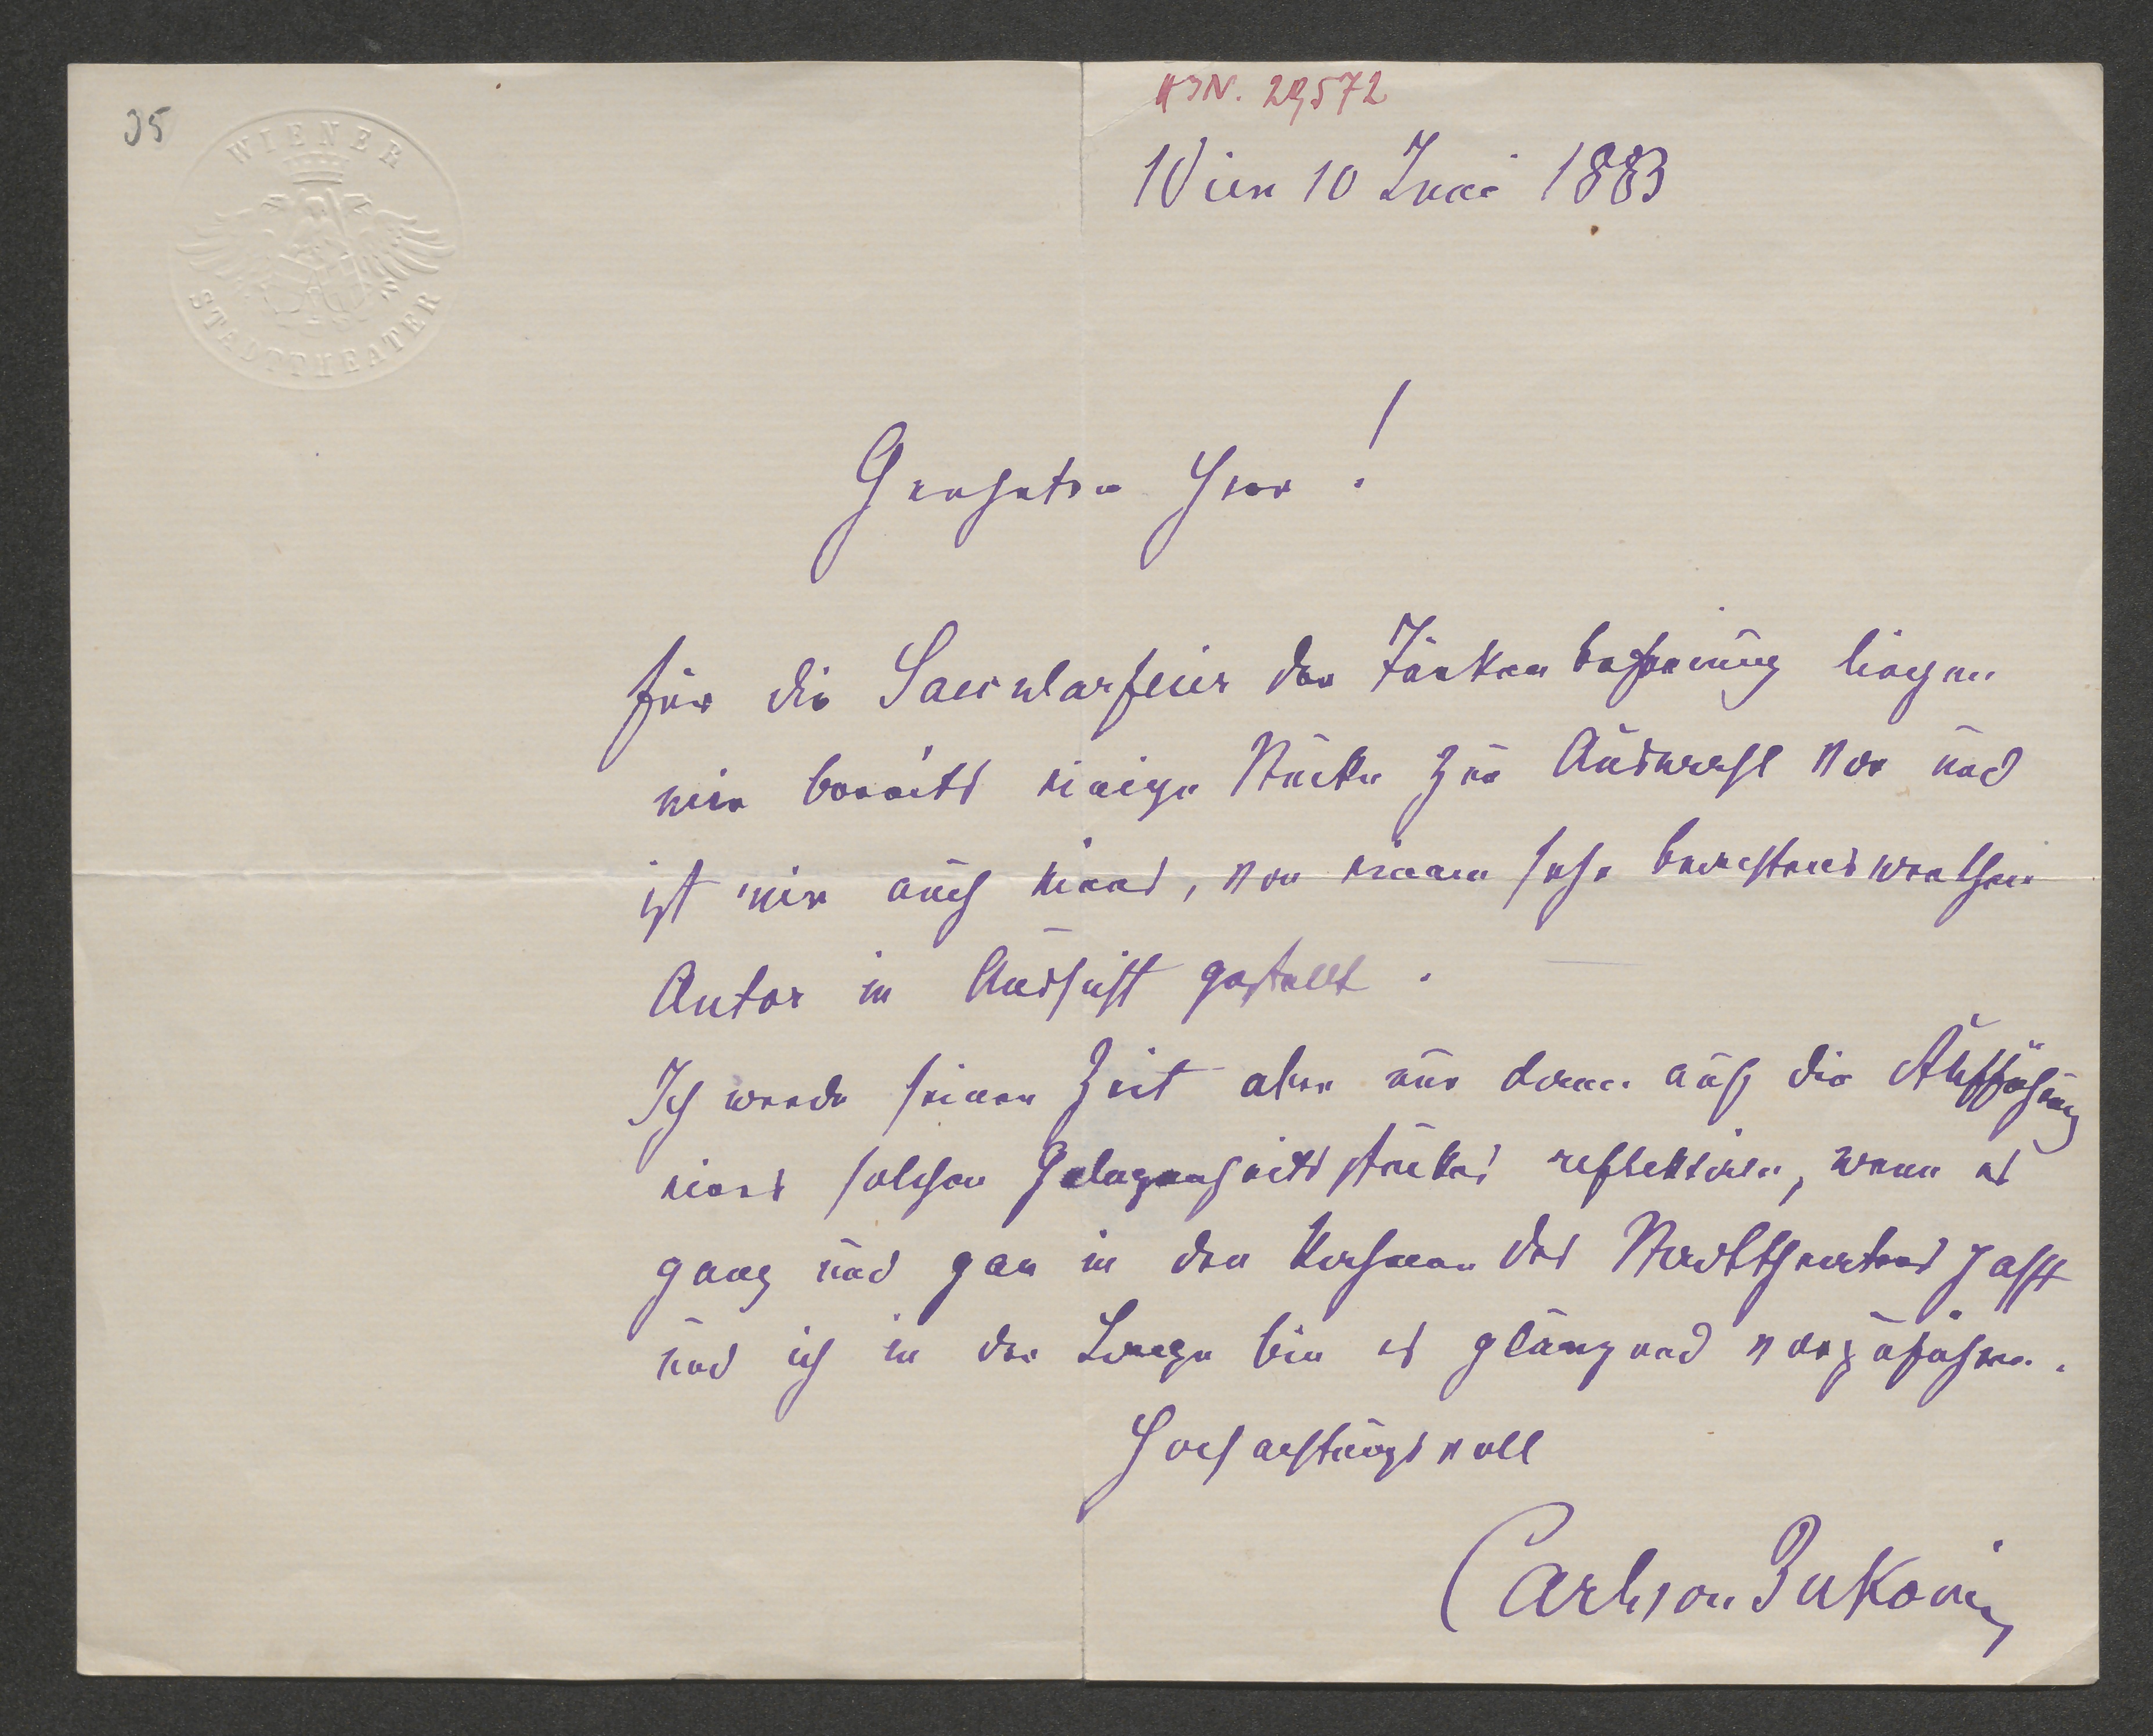 35
WIENER
STADTTHEATER
HIN. 29572
Wien 10 Juni 1883
Geehrter Herr!
für die Saecularfeier der Türkenbefreiung liegen
mir bereits einige Stücke zur Auswahl vor und
ist mir auch eines, von einem sehr beachtenswerthen
Autor in Aussicht gestellt.
Ich werde seiner Zeit aber nur dann auf die Aufführung
eines solchen Gelegenheitsstückes reflektiren, wenn es
ganz und gar in den Rahmen des Stadttheaters paßt
und ich in der Lage bin es glänzend vorzuführen.
Hochachtungsvoll
Carl von Bukovics